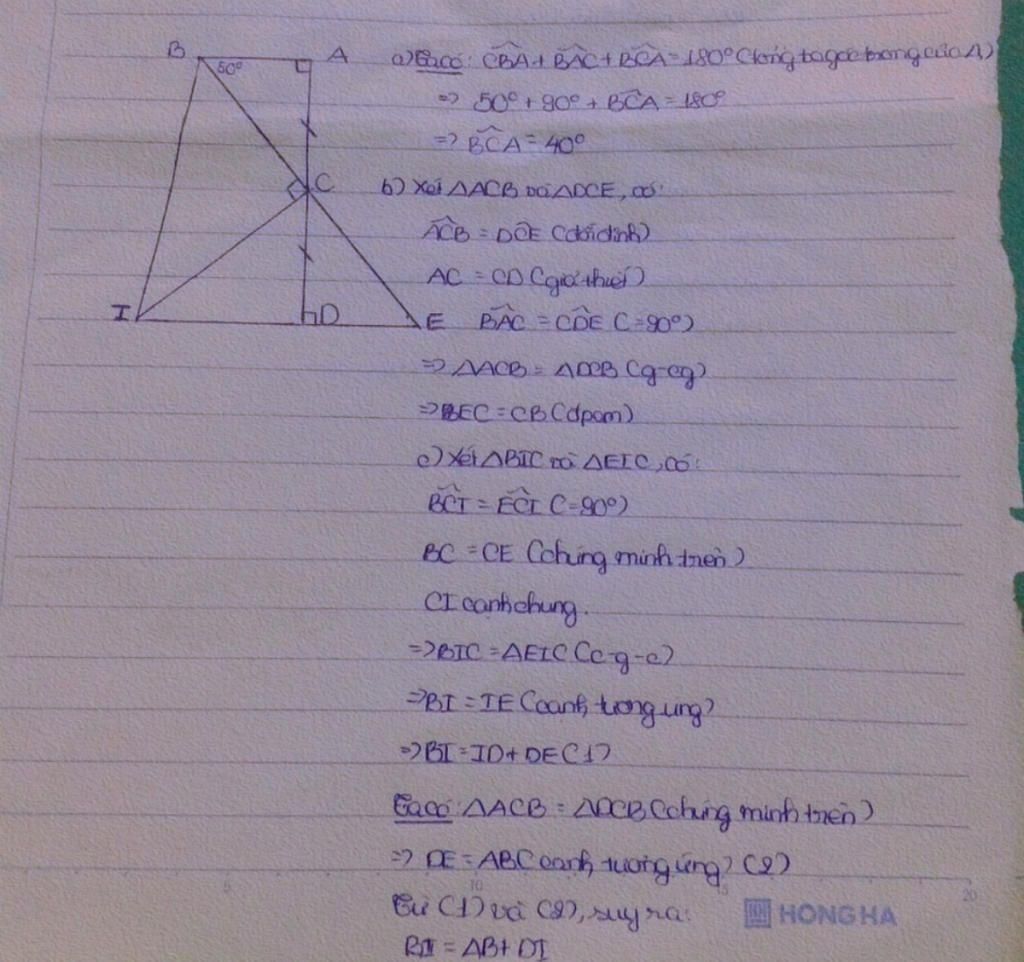 B A
50°
C
I D E
a) Ta có: CBA + BAC + BCA = 180° (tổng ba góc trong của Δ)
=> 50° + 90° + BCA = 180°
=> BCA = 40°
b) Xét ΔACB và ΔDCE, có:
ACB = DCE (đối đỉnh)
AC = CD (giả thiết)
BAC = CDE (=90°)
=> ΔACB = ΔDCB (g-cg)
=> EC = CB (dpcm)
c) Xét ΔBIC và ΔEIC, có:
BCI = ECI (=90°)
BC = CE (chứng minh trên)
CI cạnh chung.
=> BIC = ΔEIC (c-g-c)
=> BI = IE (cạnh tương ứng)
=> BI = ID + DE (1)
Ta có: ΔACB = ΔDCB (chứng minh trên)
=> DE = AB (cạnh tương ứng) (2)
Từ (1) và (2), suy ra:
BI = AB + DI
5 10 15 20
HONG HA